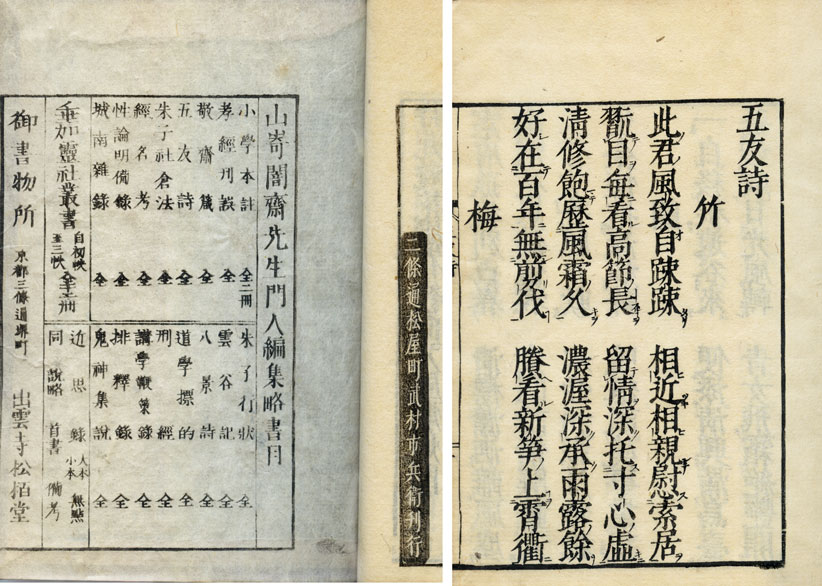 五友詩
竹
此君風致自踈踈 相近相親慰索居
翫目毎看高節長 留情深托寸心虚
清修飽歴風霜久 濃渥深承雨露餘
好在百年無剪伐 賸看新笋上霄衢
梅
三條通松屋町 武村市兵衛刊行
山嵜闇齋先生門人編集略書目
小學本註 全二冊
孝經刊誤 全
敬齋箴 全
五友詩 全
朱子社倉法 全
經名考 全
性論明備録 全
城南雜録 全
垂加靈社叢書 自初帙至三帙
朱子行状 全
雲谷記 全
八景詩 全
道學標的 全
刑經 全
講學獻策録 全
排釋録 全
鬼神集説 全
近思録 大本小本 無點
同 説略 首書 備考
御書物所 京都三條通堺町 出雲寺松栢堂